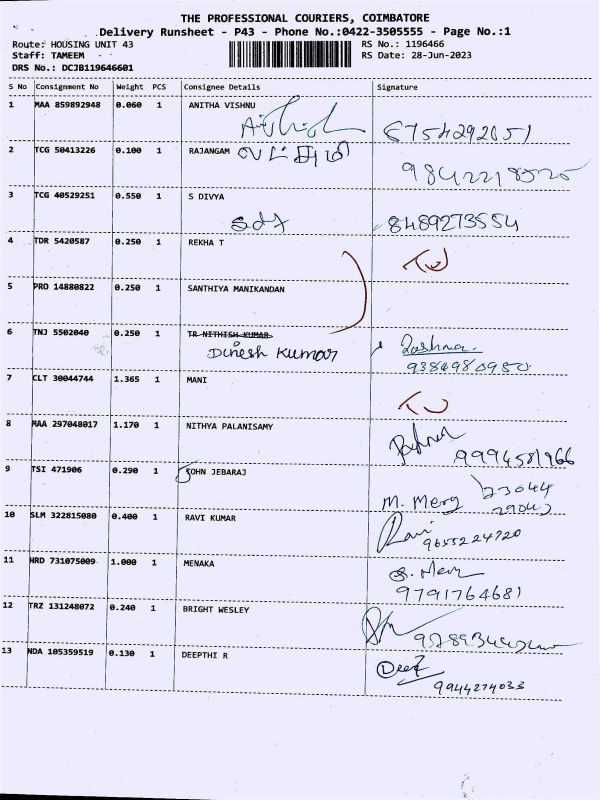 THE PROFESSIONAL COURIERS, COIMBATORE
Delivery Runsheet - P43 - Phone No.:0422-3505555 - Page No.:1
Route: HOUSING UNIT 43 RS No.: 1196466
Staff: TAMEEM RS Date: 28-Jun-2023
DRS No.: DCJB119646601
S No Consignment No Weight PCS Consignee Details Signature
1 MAA 859892948 0.060 1 ANITHA VISHNU
2 TCG 50413226 0.100 1 RAJANGAM
3 TCG 40529251 0.550 1 S DIVYA
8489273554
4 TDR 5420587 0.250 1 REKHA T
5 PRO 14880822 0.250 1 SANTHIYA MANIKANDAN
6 TNJ 5502040 0.250 1 TR NITHISH KUMAR
Dinesh Kumar
7 CLT 30044744 1.365 1 MANI
8 MAA 297048017 1.170 1 NITHYA PALANISAMY
9994581966
9 TSI 471906 0.290 1 JOHN JEBARAJ
10 SLM 322815080 0.400 1 RAVI KUMAR
Ravi
9655224720
11 HRD 731075009 1.000 1 MENAKA
9791764681
12 TRZ 131248072 0.240 1 BRIGHT WESLEY
13 NDA 105359519 0.130 1 DEEPTHI R
9944274033